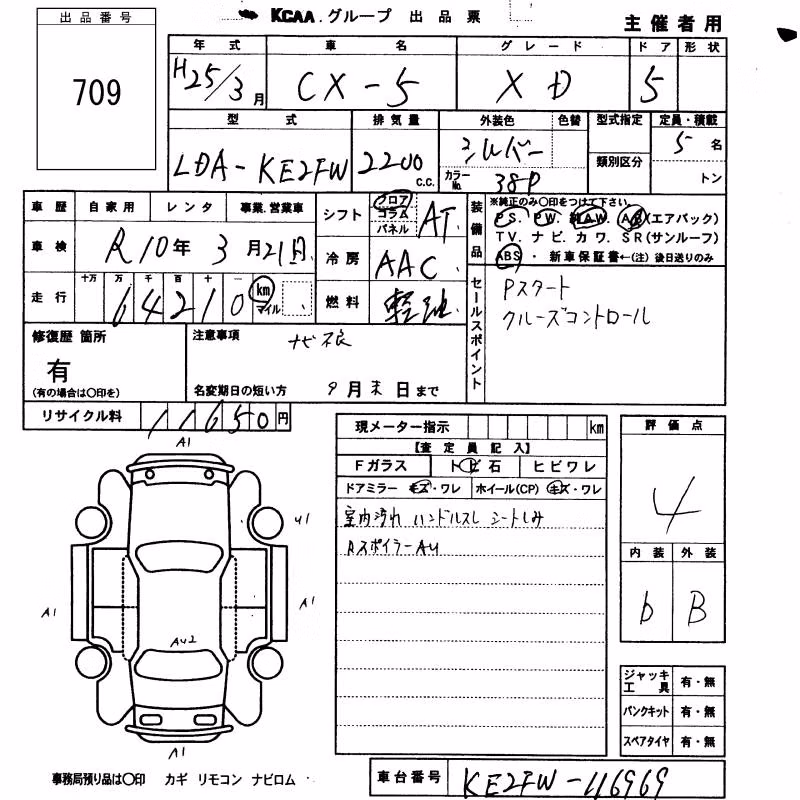 KCAA.グループ 出品票
主催者用
出品番号
709
年式 車名 グレード ドア 形状
H25/3月 CX-5 XD 5
型式 排気量 外装色 色替 型式指定 定員・積載
LDA-KE2FW 2200 c.c. シルバー 5名
カラーNo. 38P 類別区分 トン
車歴 自家用 レンタ 事業.営業車
シフト フロア コラム パネル AT
装備品 ※純正のみ〇印をつけて下さい
PS. PW. AW. AB(エアバック)
TV. ナビ. カワ. SR(サンルーフ)
ABS ・ 新車保証書←(注) 後日送りのみ
車検 R10年 3月21日
冷房 AAC
走行 十万 万 千 百 十 一
64210 km マイル
燃料 軽油
セールスポイント
Pスタート
クルーズコントロール
修復歴 箇所
有
(有の場合は〇印を)
注意事項
名変期日の短い方 9月末日まで
リサイクル料 11650円
現メーター指示 km
【査定員記入】
Fガラス トビ石 ヒビワレ
ドアミラー キズ・ワレ ホイール(CP) キズ・ワレ
室内汚れ ハンドルスレ シートしみ
RスポイラーAU
評価点
4
内装 外装
b B
A1
A1
A1
AU2
A1
ジャッキ工具 有・無
パンクキット 有・無
スペアタイヤ 有・無
事務局預り品は〇印 カギ リモコン ナビロム
車台番号 KE2FW-116969